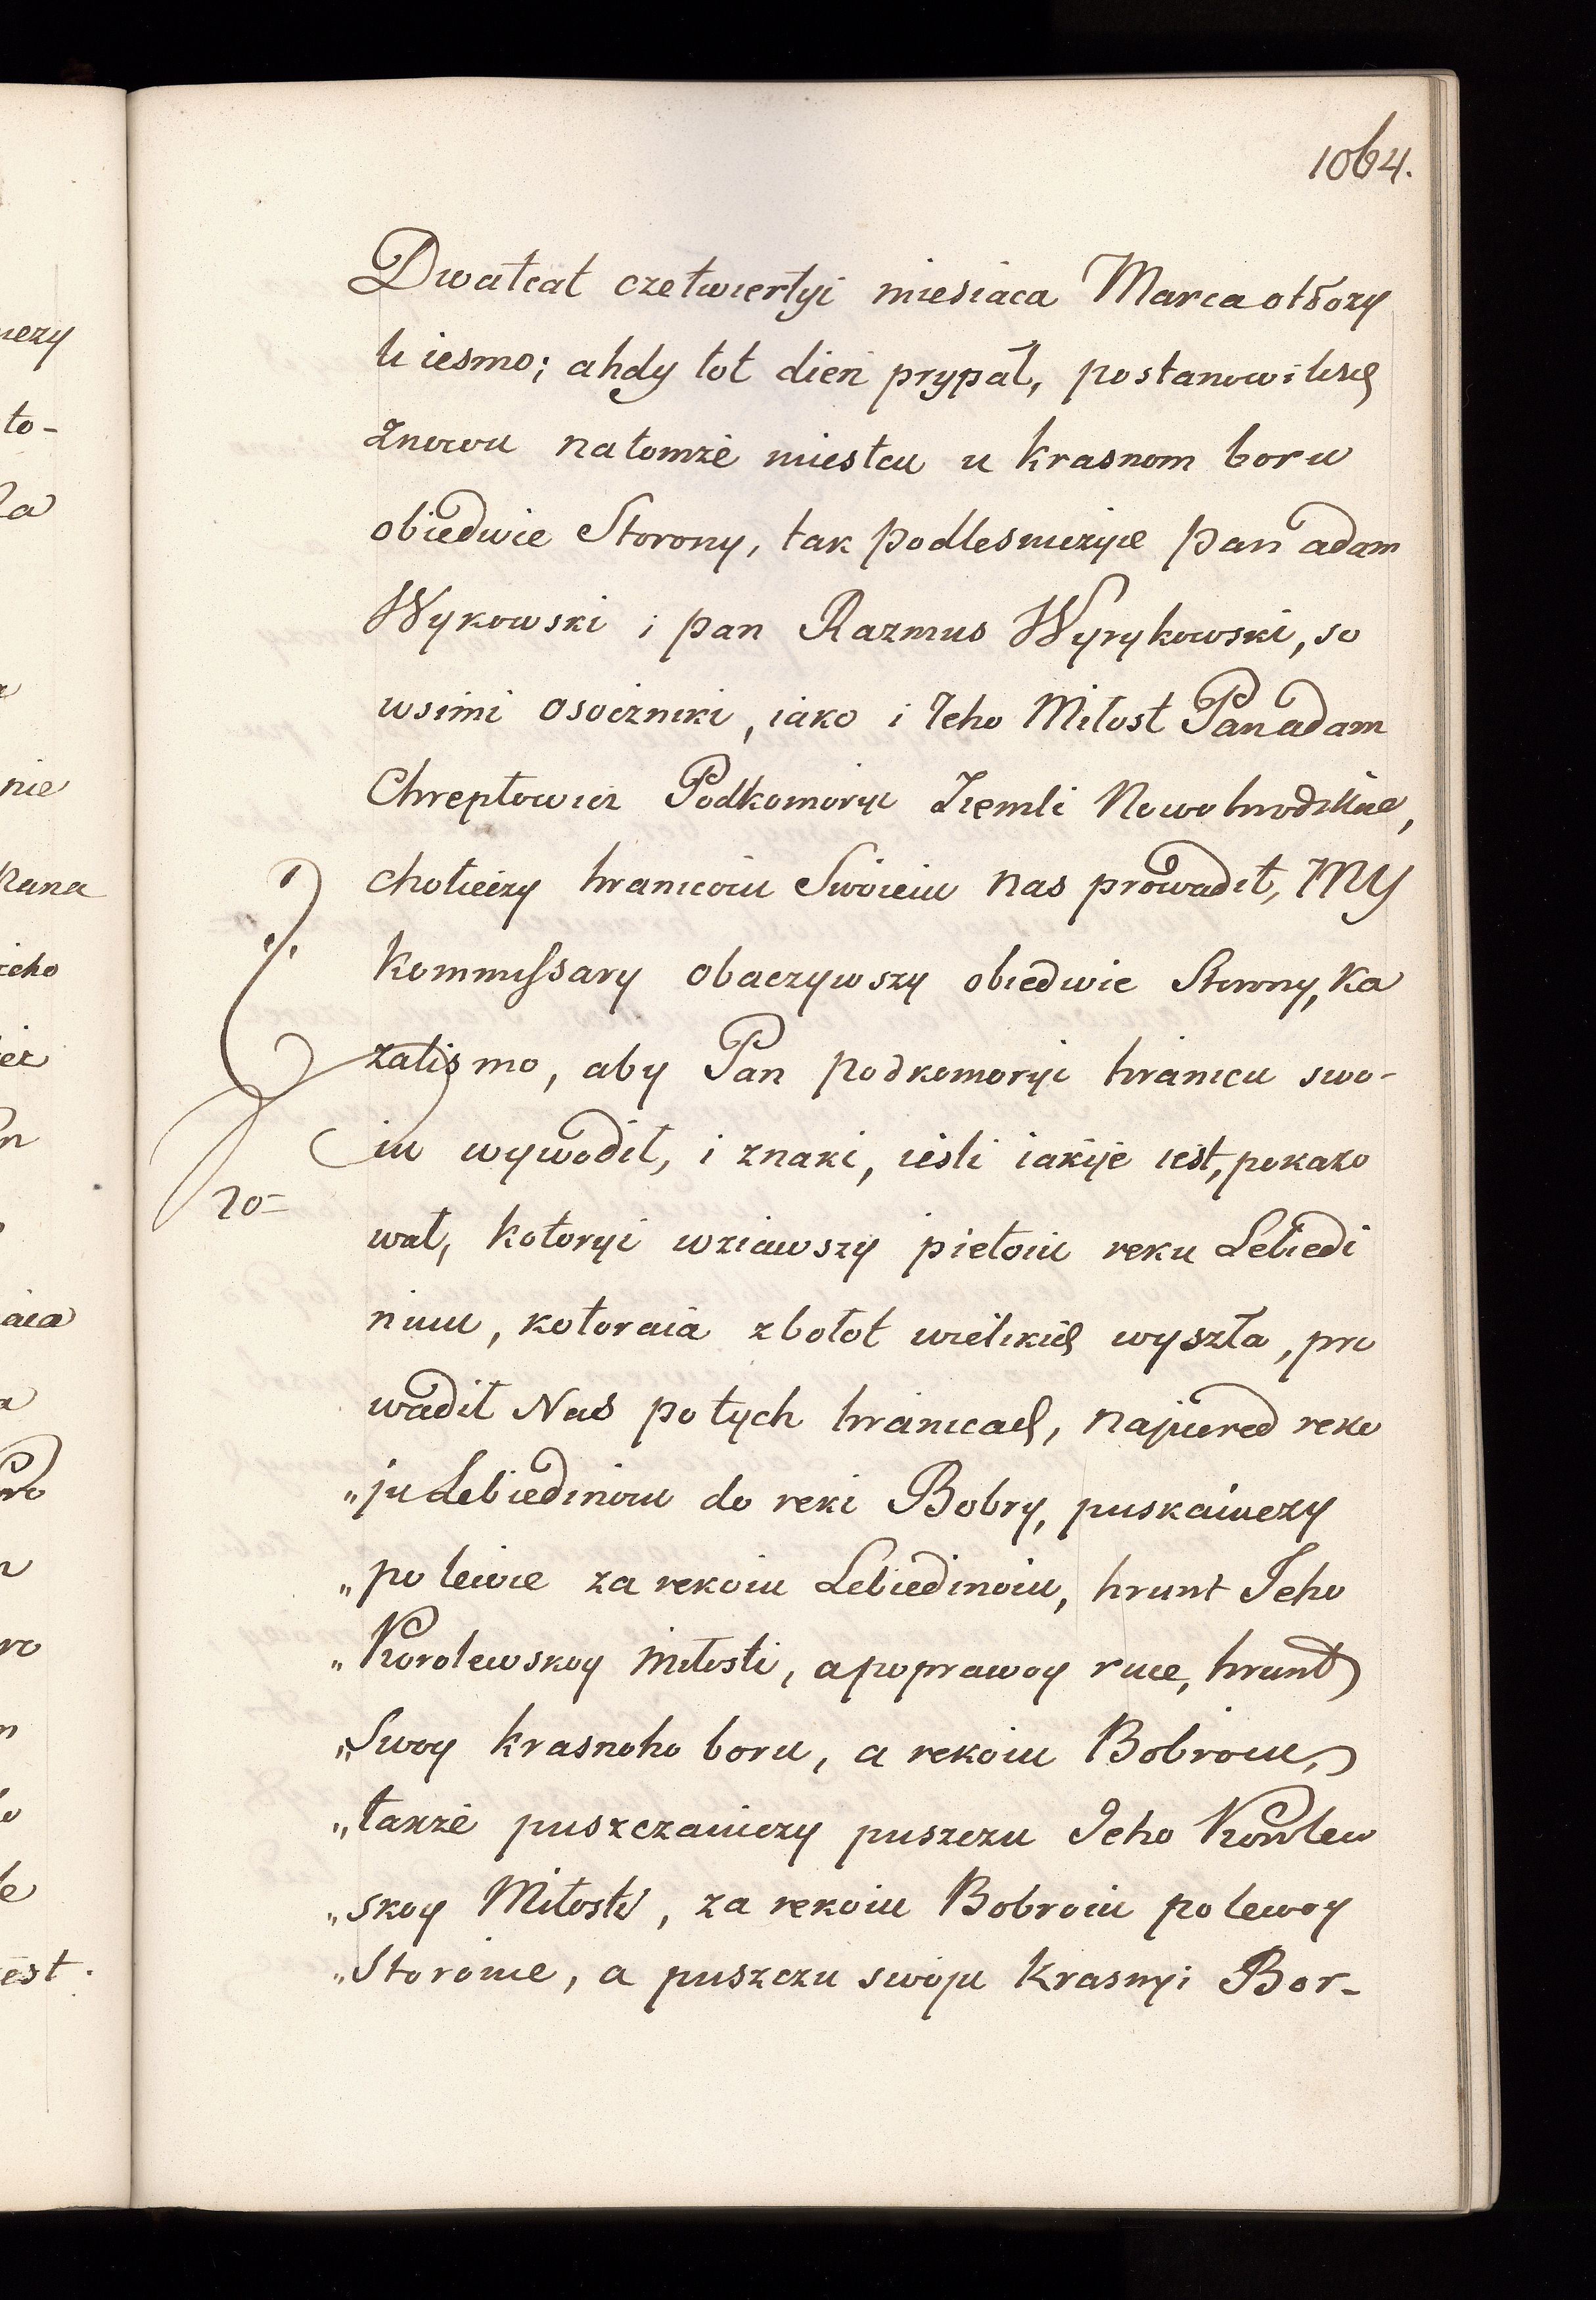 1064.
Dwatcat czetwiertyi miesiaca Marca otłozy
li iesmo; ahdy tot dien prypał, postanowilisę
znowu natomże miestcu u krasnom boru
obiedwie Storony, tak podlesniczyie pan adam
Wykowski i pan Razmus Wyrykowski, so
wsimi osoczniki, iako i Jeho Miłost Pan adam
Chreptowicz Podkomoryi Ziemli Nowohrodskiie,
chotieczy hranicoiu Swoieiu nas prowadit, MY
kommissary obaczywszy obiedwie Storony, Ka
zalismo, aby Pan podkomoryi hranicu swo-
iu wywodił, i znaki, iesli iakije iest, pokazo
20=
wał, kotoryi wziawszy pietoiu reku Lebiedi
nuiu, kotoraia z bołot wielikich wyszła, pro
wadił Nas po tych hranicach, najpered reko
„ju Lebiedinoiu do reki Bobry, puskaiuczy
„po lewie za rekoiu Lebiedinoiu, hrunt Jeho
„Korolewskoy miłosti, apoprawoy ruce, hrunt
„Swoy krasnoho boru, a rekoiu Bobroiu,
„także puszczaiuczy puszczu Jeho Korolew
„skoy Miłosti, za rekoiu Bobroiu po lewoy
„Storonie, a puszczu swoju Krasnyi Bor-